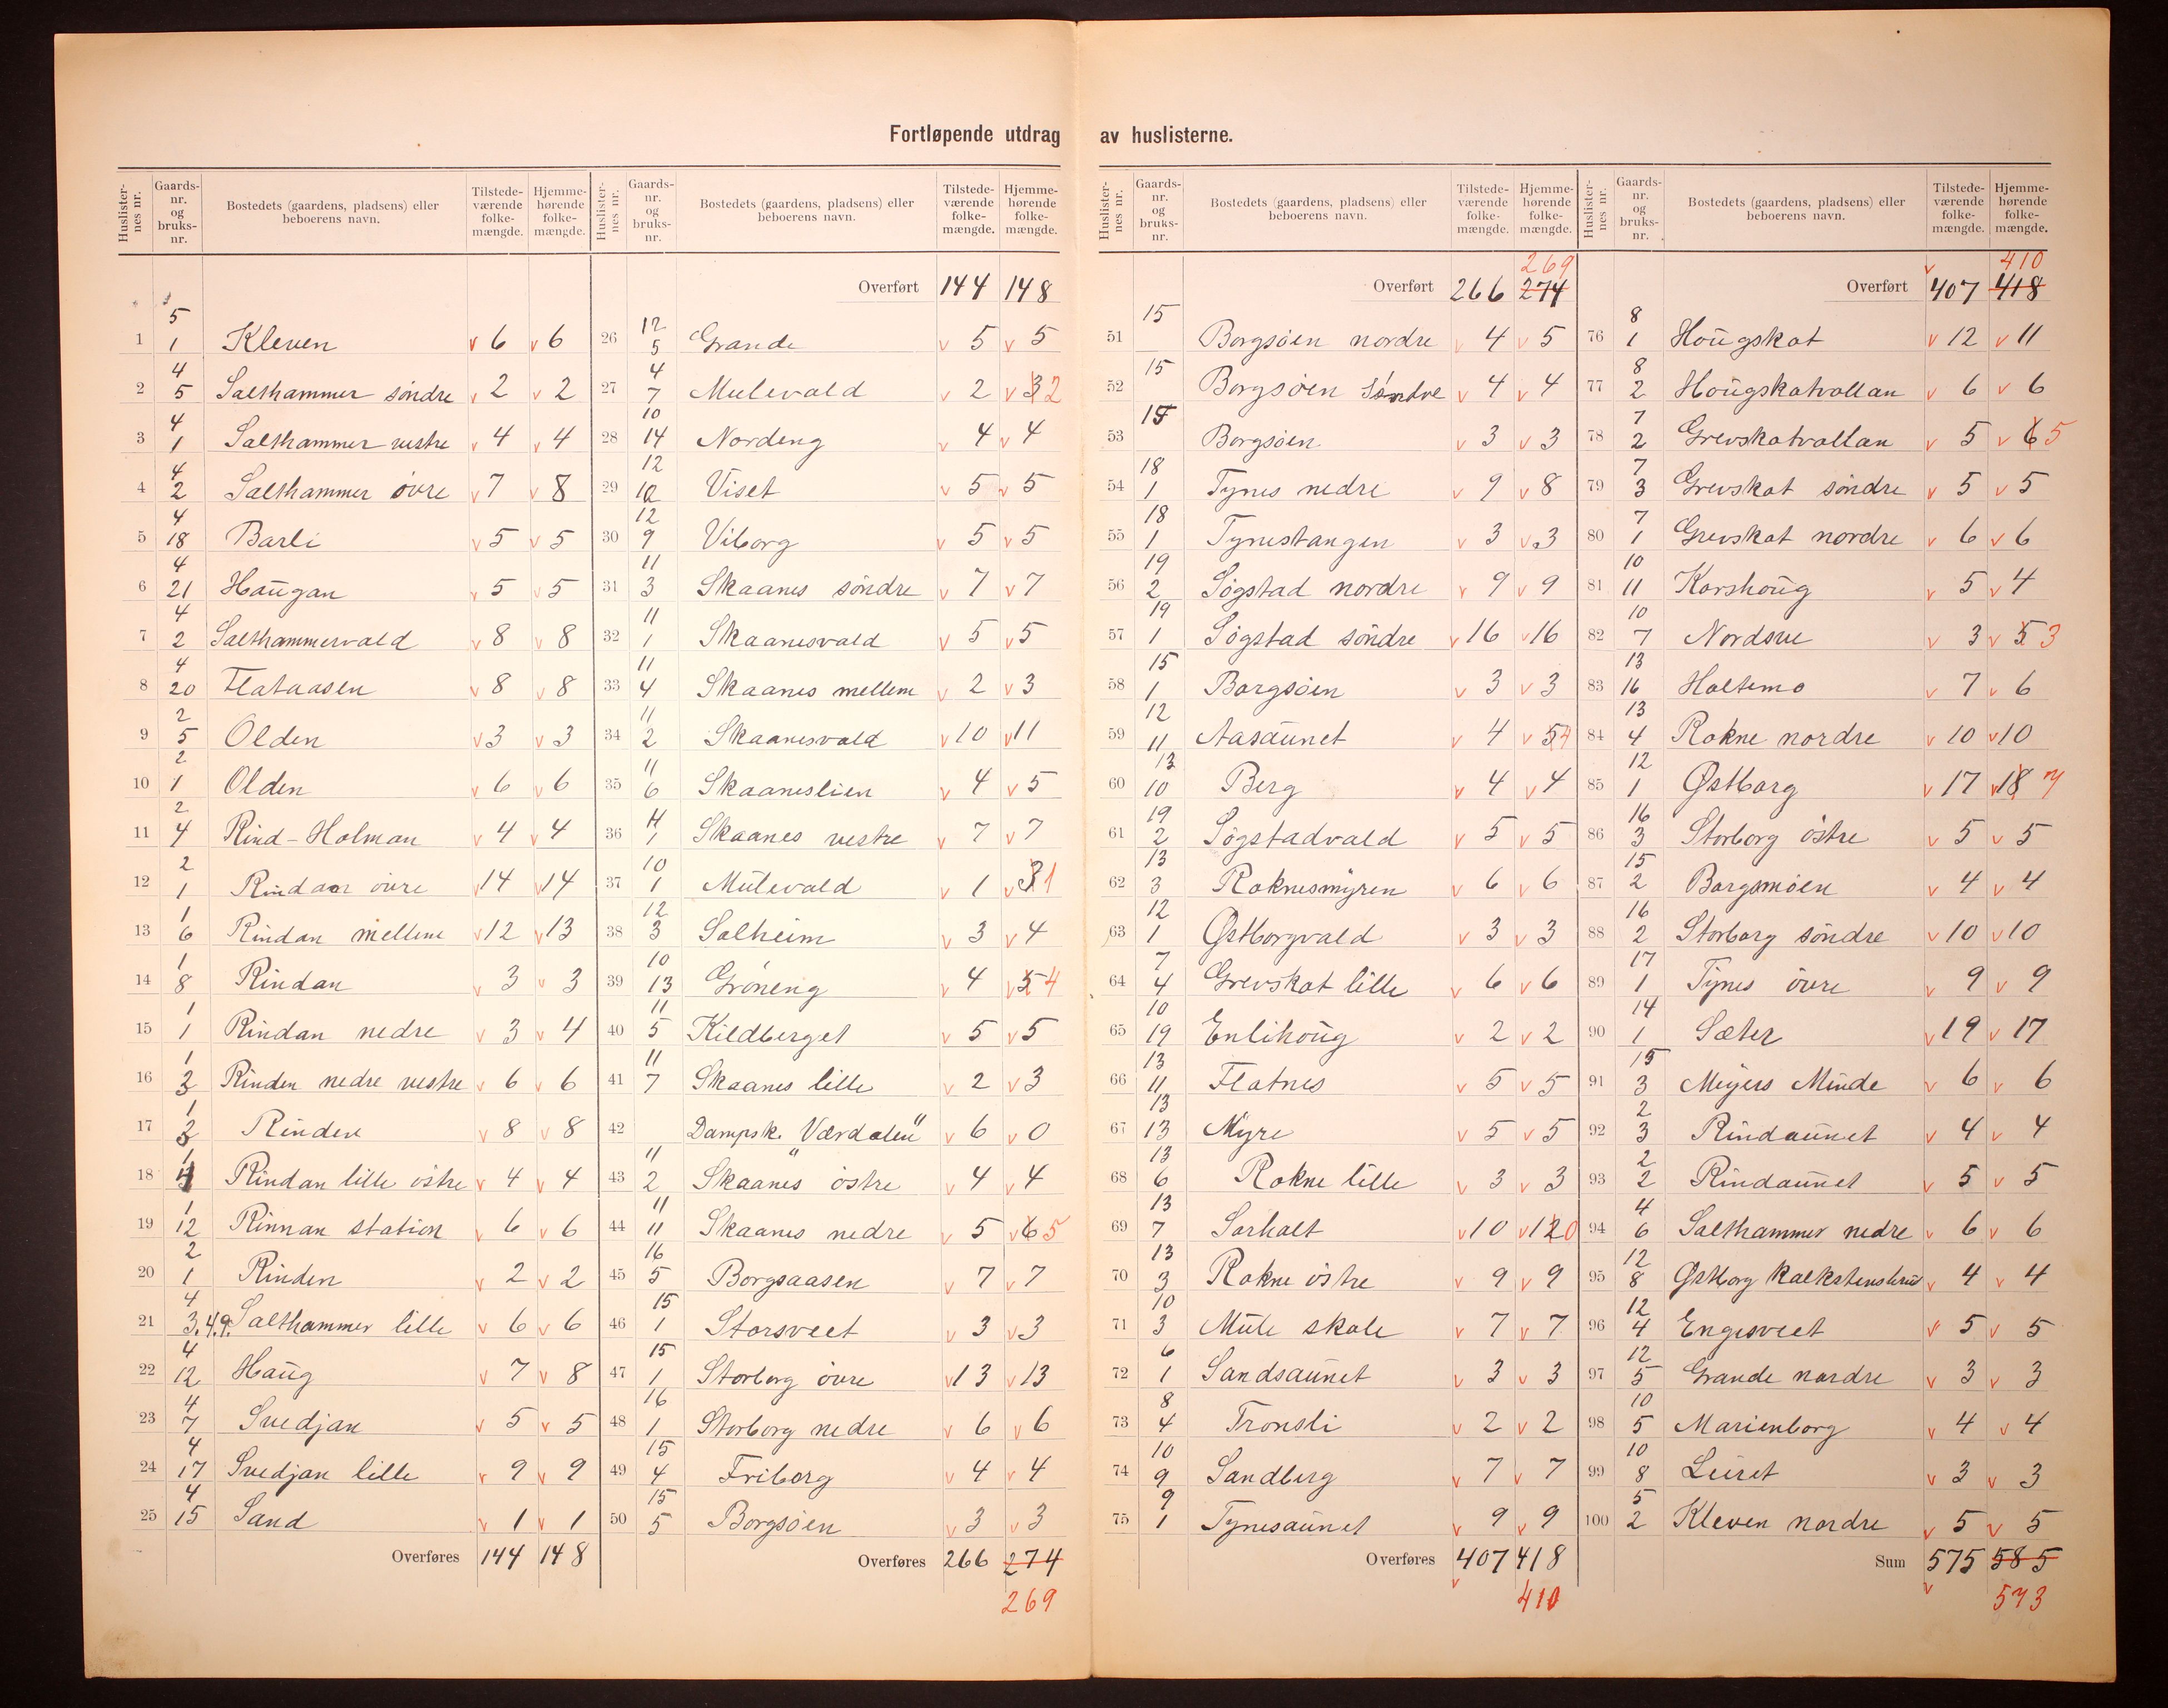 Fortløpende utdrag av huslisterne.
Huslister-nes nr. Gaards-nr. og bruks-nr. Bostedets (gaardens, pladsens) eller beboerens navn. Tilstede-værende folke-mængde. Hjemme-hørende folke-mængde.
1 5 1 Kleven 6 6
2 4 5 Salthammer söndre 2 2
3 4 1 Salthammer vestre 4 4
4 4 2 Salthammer övre 7 8
5 4 18 Barli 5 5
6 4 21 Haugan 5 5
7 4 2 Salthammervald 8 8
8 4 20 Flataasen 8 8
9 2 5 Olden 3 3
10 2 1 Olden 6 6
11 2 4 Rind-Holman 4 4
12 2 1 Rindan övre 14 14
13 1 6 Rindan mellem 12 13
14 1 8 Rindan 3 3
15 1 1 Rindan nedre 3 4
16 1 2 Rinden nedre vestre 6 6
17 1 3 Rinden 8 8
18 1 4 Rindan lille östre 4 4
19 1 12 Rinnan station 6 6
20 2 1 Rinden 2 2
21 4 3.4.9. Salthammer lille 6 6
22 4 12 Haug 7 8
23 4 7 Svedjan 5 5
24 4 17 Svedjan lille 9 9
25 4 15 Sand 1 1
Overføres 144 148
Huslister-nes nr. Gaards-nr. og bruks-nr. Bostedets (gaardens, pladsens) eller beboerens navn. Tilstede-værende folke-mængde. Hjemme-hørende folke-mængde.
Overført 144 148
26 12 5 Grande 5 5
27 4 7 Mulevald 2 3 2
28 10 14 Nordeng 4 4
29 12 10 Viset 5 5
30 12 9 Viborg 5 5
31 11 3 Skaanes söndre 7 7
32 11 1 Skaanesvald 5 5
33 11 4 Skaanes mellem 2 3
34 11 2 Skaanesvald 10 11
35 11 6 Skaaneslien 4 5
36 11 1 Skaanes vestre 7 7
37 10 1 Mulevald 1 3 1
38 12 3 Solheim 3 4
39 10 13 Gröneng 4 5 4
40 11 5 Kildberget 5 5
41 11 7 Skaanes lille 2 3
42 Dampsk. "Værdalen" 6 0
43 11 2 Skaanes östre 4 4
44 11 11 Skaanes nedre 5 6 5
45 16 5 Borgsaasen 7 7
46 15 1 Storsveet 3 3
47 15 1 Storborg övre 13 13
48 16 1 Storborg nedre 6 6
49 15 4 Friborg 4 4
50 15 5 Borgsöen 3 3
Overføres 266 274
269
Huslister-nes nr. Gaards-nr. og bruks-nr. Bostedets (gaardens, pladsens) eller beboerens navn. Tilstede-værende folke-mængde. Hjemme-hørende folke-mængde.
269
Overført 266 274
51 15 Borgsöen nordre 4 5
52 15 Borgsöen Söndre 4 4
53 15 Borgsöen 3 3
54 18 1 Tynes nedre 9 8
55 18 1 Tynestangen 3 3
56 19 2 Sögstad nordre 9 9
57 19 1 Sögstad söndre 16 16
58 15 1 Borgsöen 3 3
59 12 11 Aasaunet 4 5 4
60 13 10 Berg 4 4
61 19 2 Sögstadvald 5 5
62 13 3 Roknesmyren 6 6
63 12 1 Östborgvald 3 3
64 7 4 Grevskot lille 6 6
65 10 19 Enlihoug 2 2
66 13 11 Flatnes 5 5
67 13 13 Myre 5 5
68 13 6 Rokne lille 3 3
69 13 7 Sorholt 10 12 0
70 13 3 Rokne östre 9 9
71 10 3 Mule skole 7 7
72 6 1 Sandsaunet 3 3
73 8 4 Tronsli 2 2
74 10 9 Sandberg 7 7
75 9 1 Tynesaunet 9 9
Overføres 407 418
410
Huslister-nes nr. Gaards-nr. og bruks-nr. Bostedets (gaardens, pladsens) eller beboerens navn. Tilstede-værende folke-mængde. Hjemme-hørende folke-mængde.
410
Overført 407 418
76 8 1 Hougskot 12 11
77 8 2 Hougskotvollan 6 6
78 7 2 Grevskotvollan 5 6 5
79 7 3 Grevskot söndre 5 5
80 7 1 Grevskot nordre 6 6
81 10 11 Korshoug 5 4
82 10 7 Nordsve 3 5 3
83 13 16 Holtemo 7 6
84 13 4 Rokne nordre 10 10
85 12 1 Östborg 17 18 7
86 16 3 Storborg östre 5 5
87 15 2 Borgsmöen 4 4
88 16 2 Storborg söndre 10 10
89 17 1 Tynes övre 9 9
90 14 1 Sæter 19 17
91 15 3 Meyers Minde 6 6
92 2 3 Rindaunet 4 4
93 2 2 Rindaunet 5 5
94 4 6 Salthammer nedre 6 6
95 12 8 Östborg 4 4
96 12 4 Engesveet 5 5
97 12 5 Grande nordre 3 3
98 10 5 Marienborg 4 4
99 10 8 Leiret 3 3
100 5 2 Kleven nordre 5 5
Sum 575 585
573